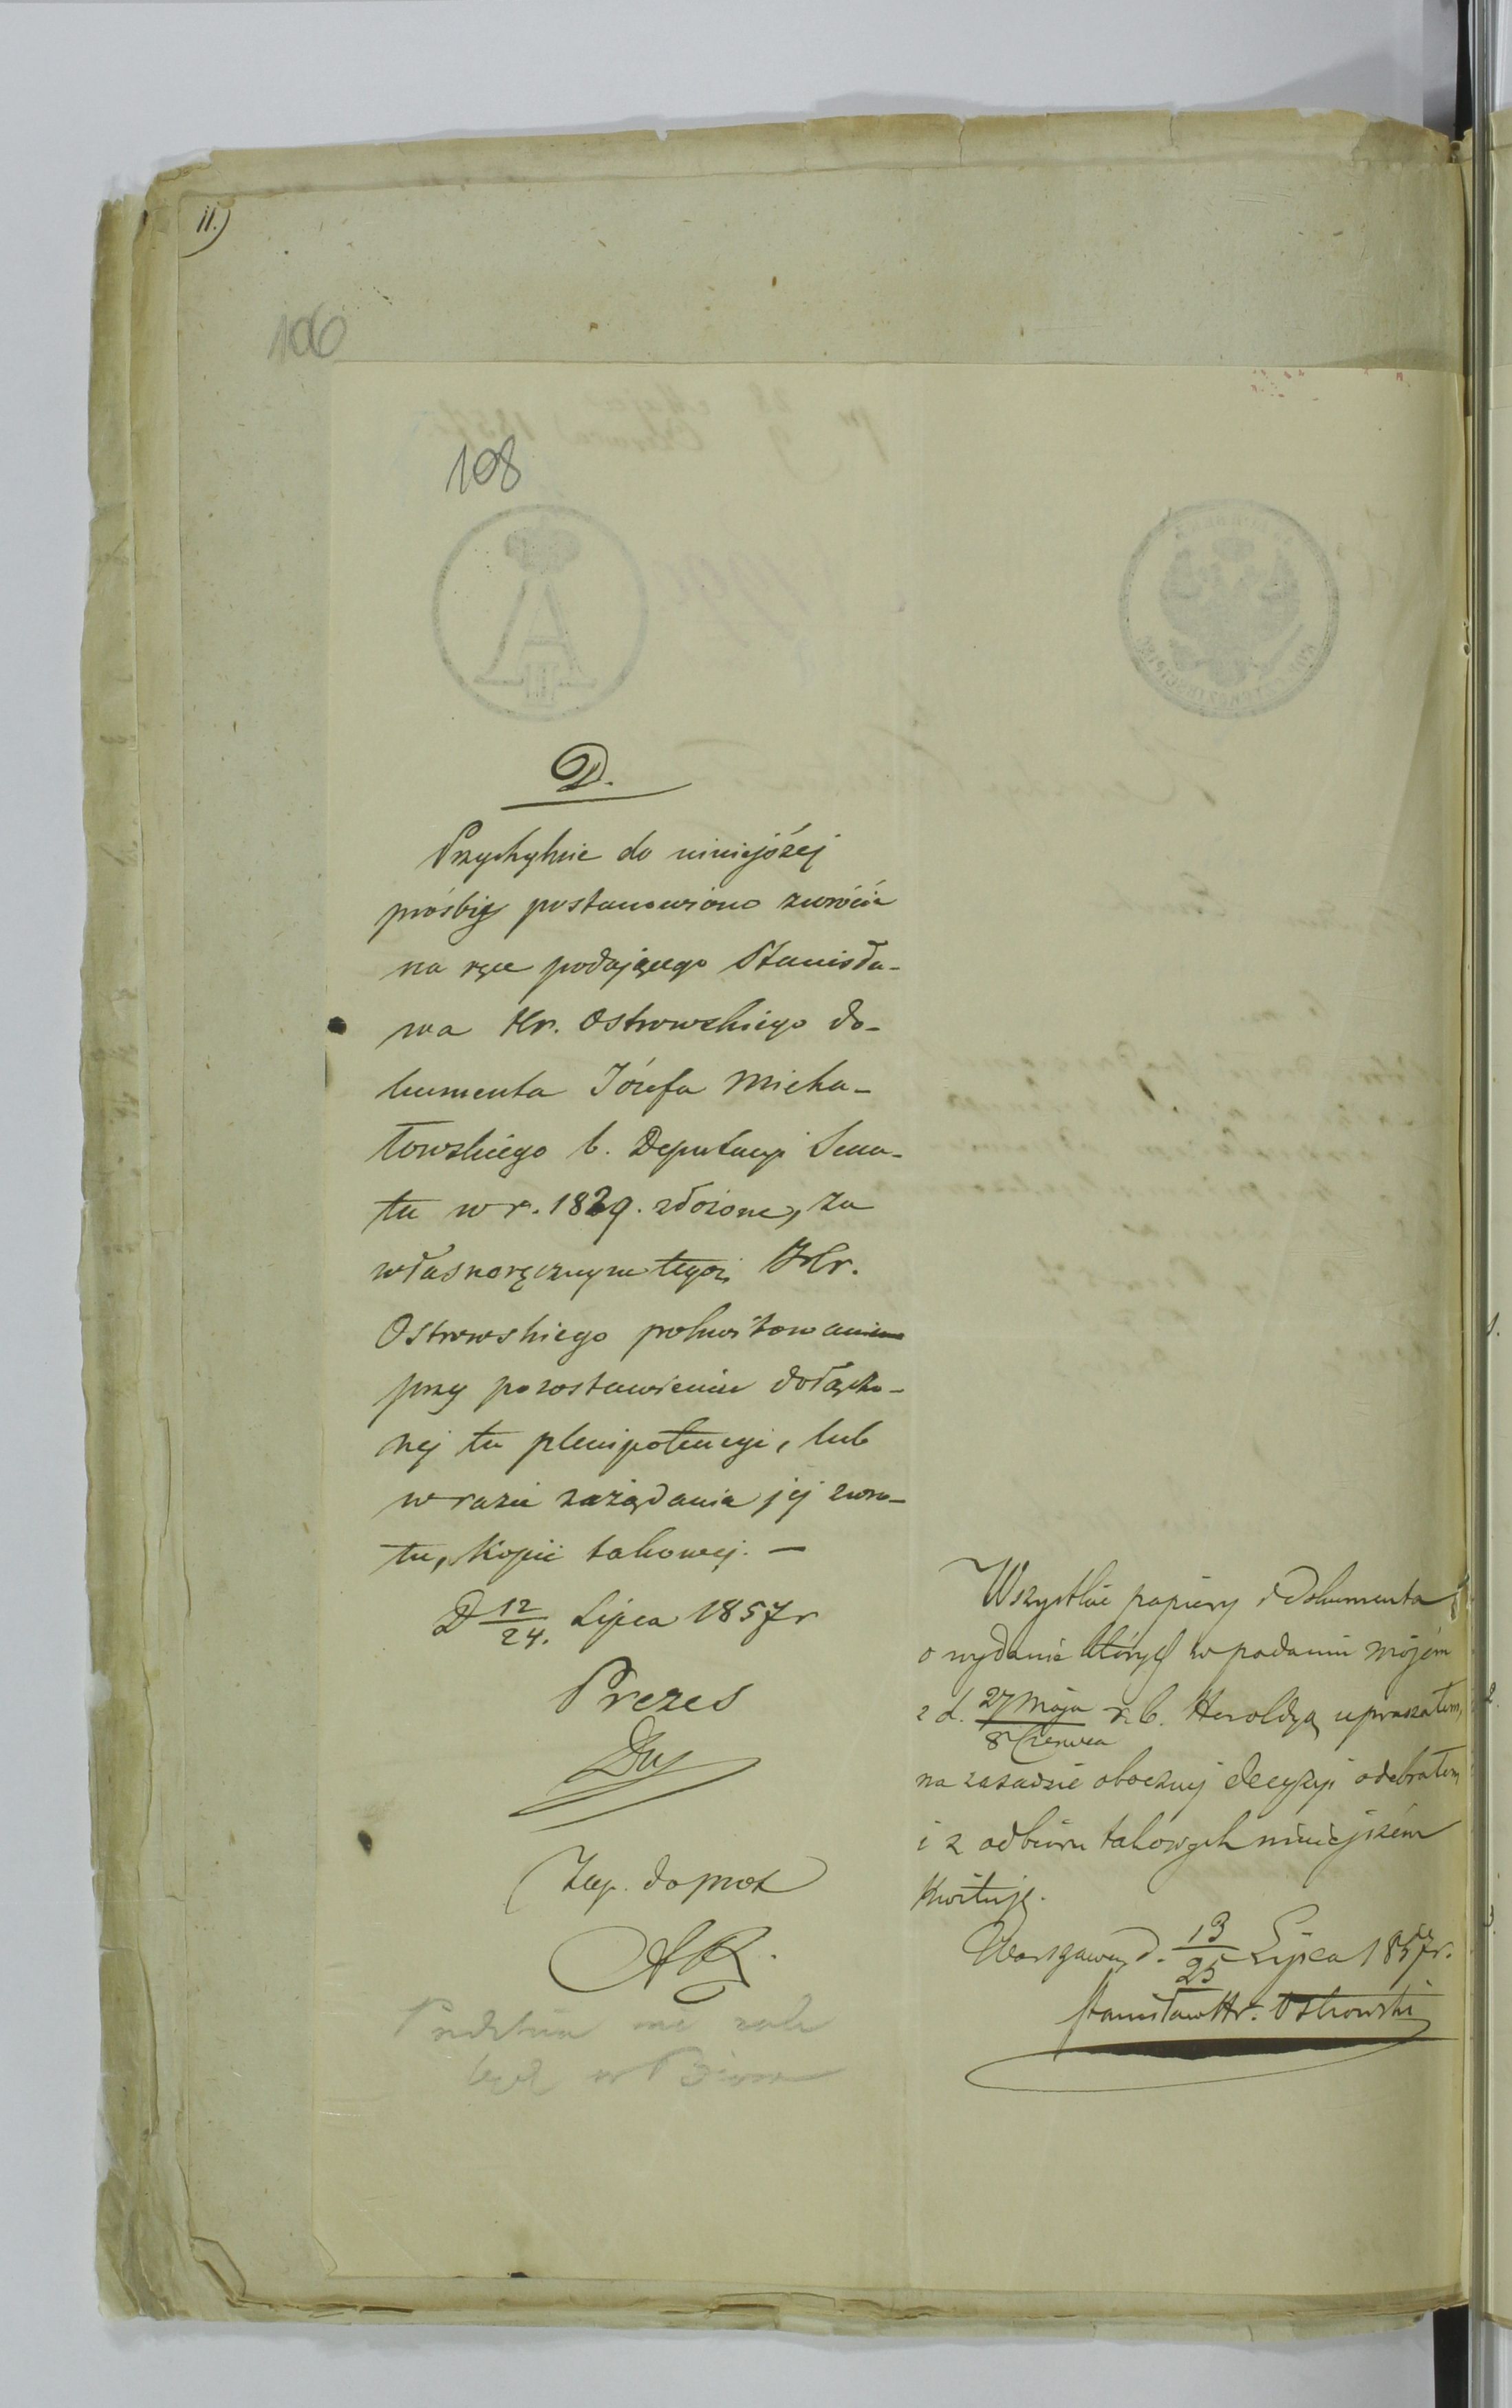 11.)
106
108
D.
Przychylnie do niniejszéj
prośby postanowiono zwrócić
na ręce podającego Stanisła-
wa Hr. Ostrowskiego do-
kumenta Józefa Micha-
łowskiego b. Deputacyi Sena-
tu w r. 1829. złożone, za
własnoręcznym tegoż Hr.
Ostrowskiego pokwitowaniem
przy pozostawieniu dołączo-
nej tu plenipotencyi, lub
w razie zażądania jej zwro-
tu, kopii takowej. —
D 12/24. Lipca 1857 r
Prezes
Zap. do prot
AR.
w Biórze
Wszystkie papiery i dokumenta
o wydanie których w podaniu mojém
z d. 27 Maja/8 Czerwca r. b. Heroldyą upraszałem,
na zasadzie obocznej decyzyi odebrałem
i z odbioru takowych niniejszém
kwituję.
Warszawa, d. 13/25 Lipca 1857 r.
Stanisław Hr. Ostrowski